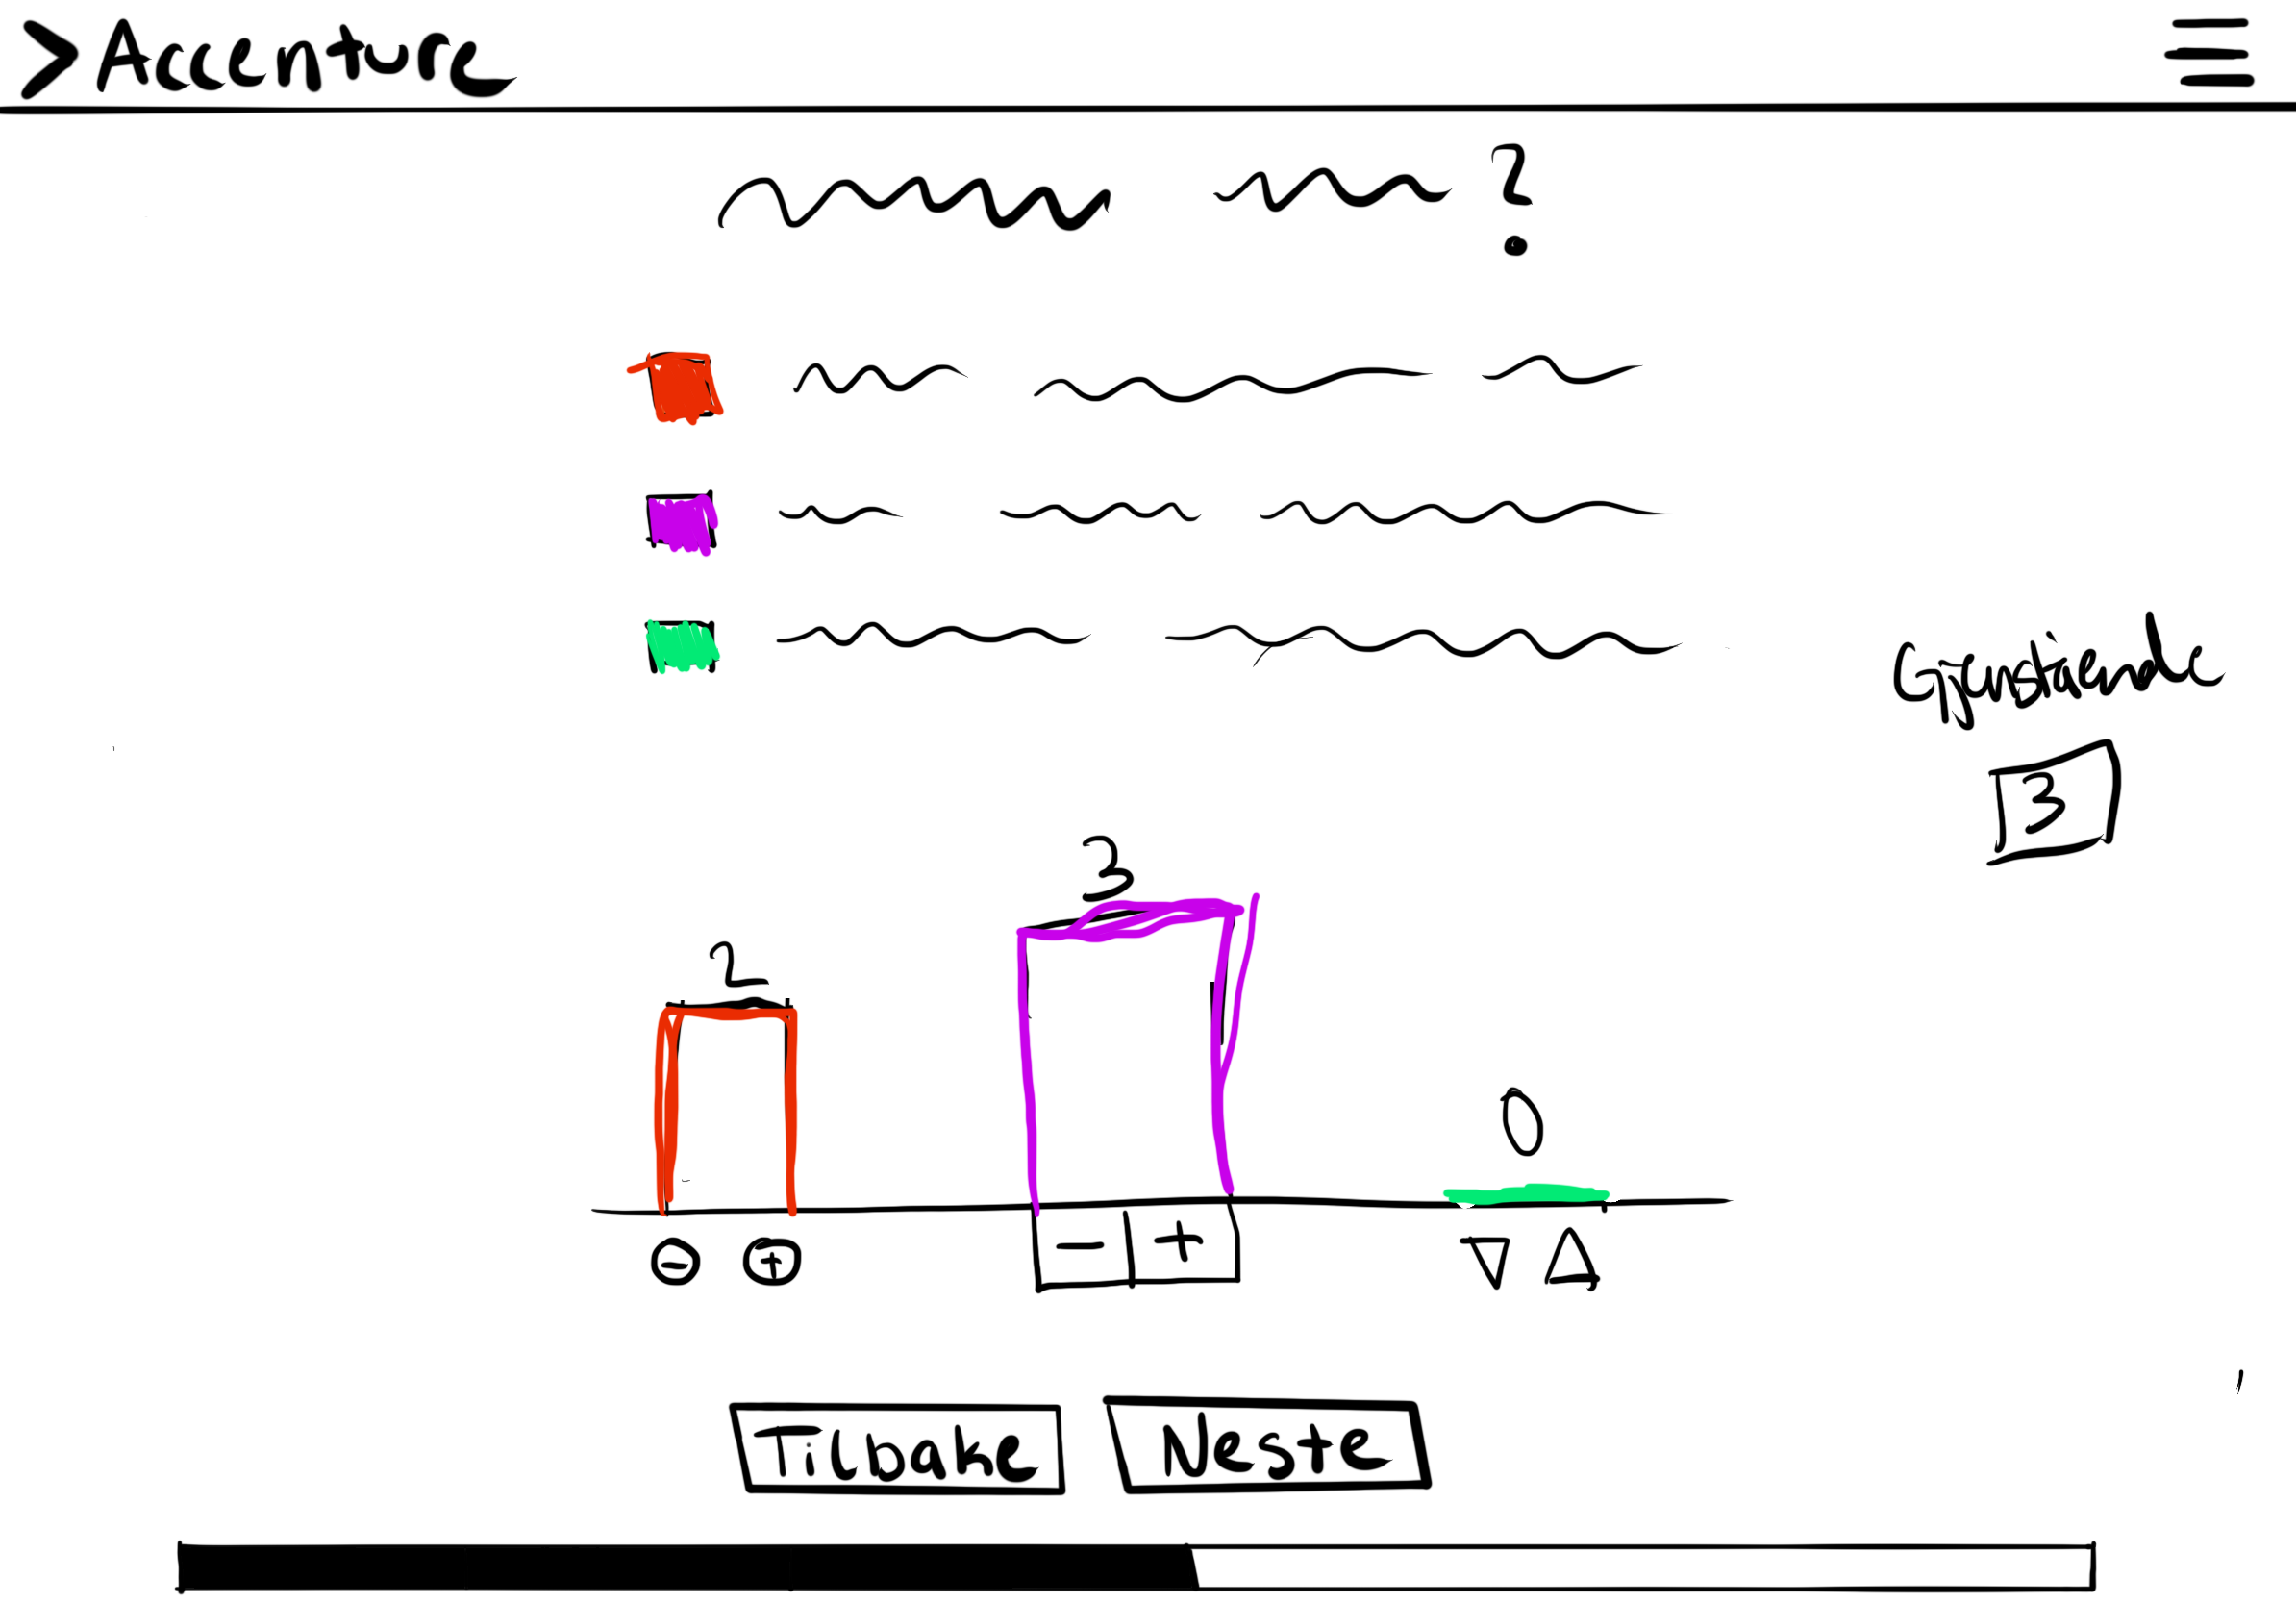 >Accenture
?
Gjenstående
3
3
2
0
- +
- +
Tilbake Neste